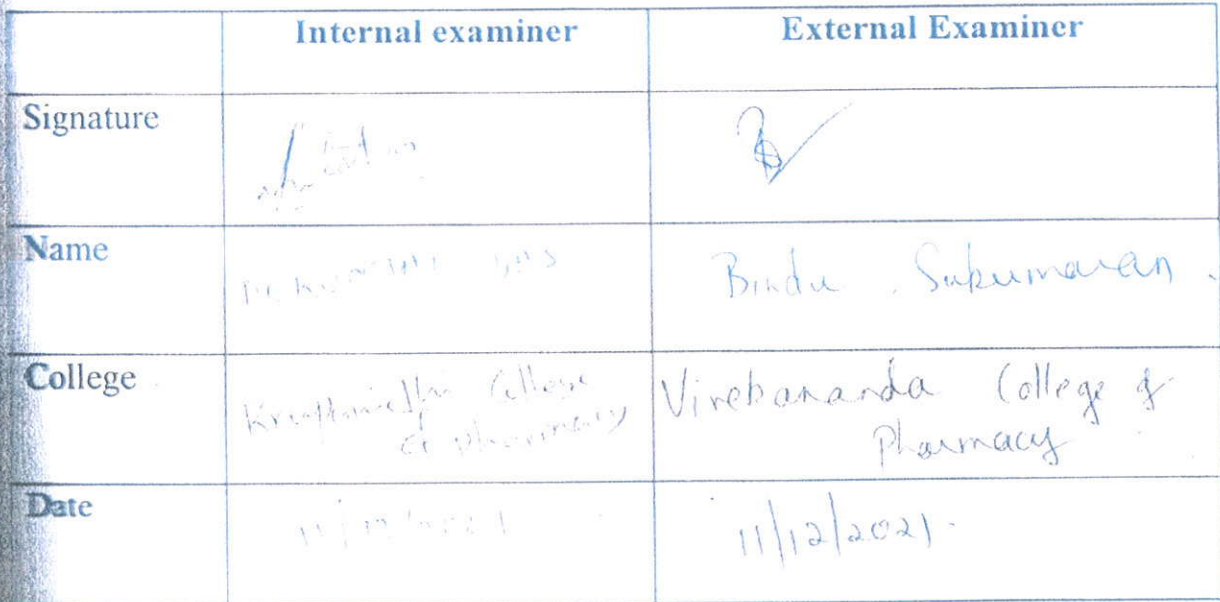 Internal examiner External Examiner
Signature
Name Bindu . Sukumaran .
College College Vivekananda College of
Pharmacy Pharmacy
Date 11/12/2021 11/12/2021.